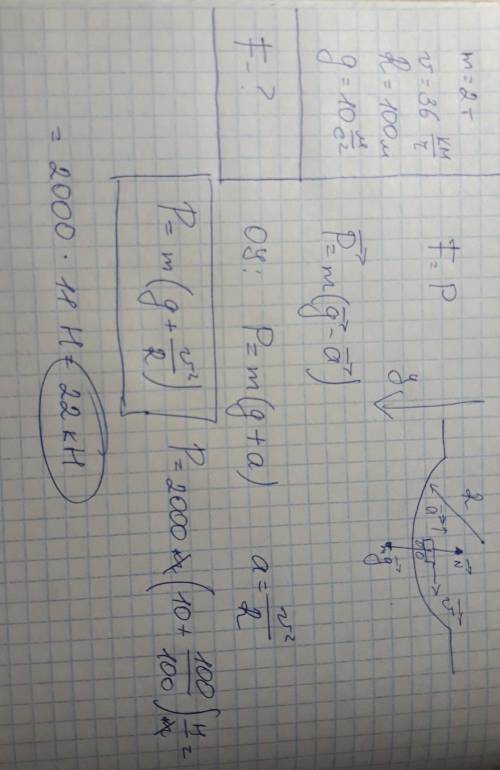 m = 2т
v = 36 км/ч
R = 100 м
g = 10 м/с²
F - ?
F = P
P⃗ = m(g⃗ - a⃗)
Oy: P = m(g + a) a = v²/R
P = m(g + v²/R) P = 2000 кг (10 + 100/100) Н/кг =
= 2000 · 11 Н = 22 кН
y
R
a⃗
N⃗
v⃗
mg⃗